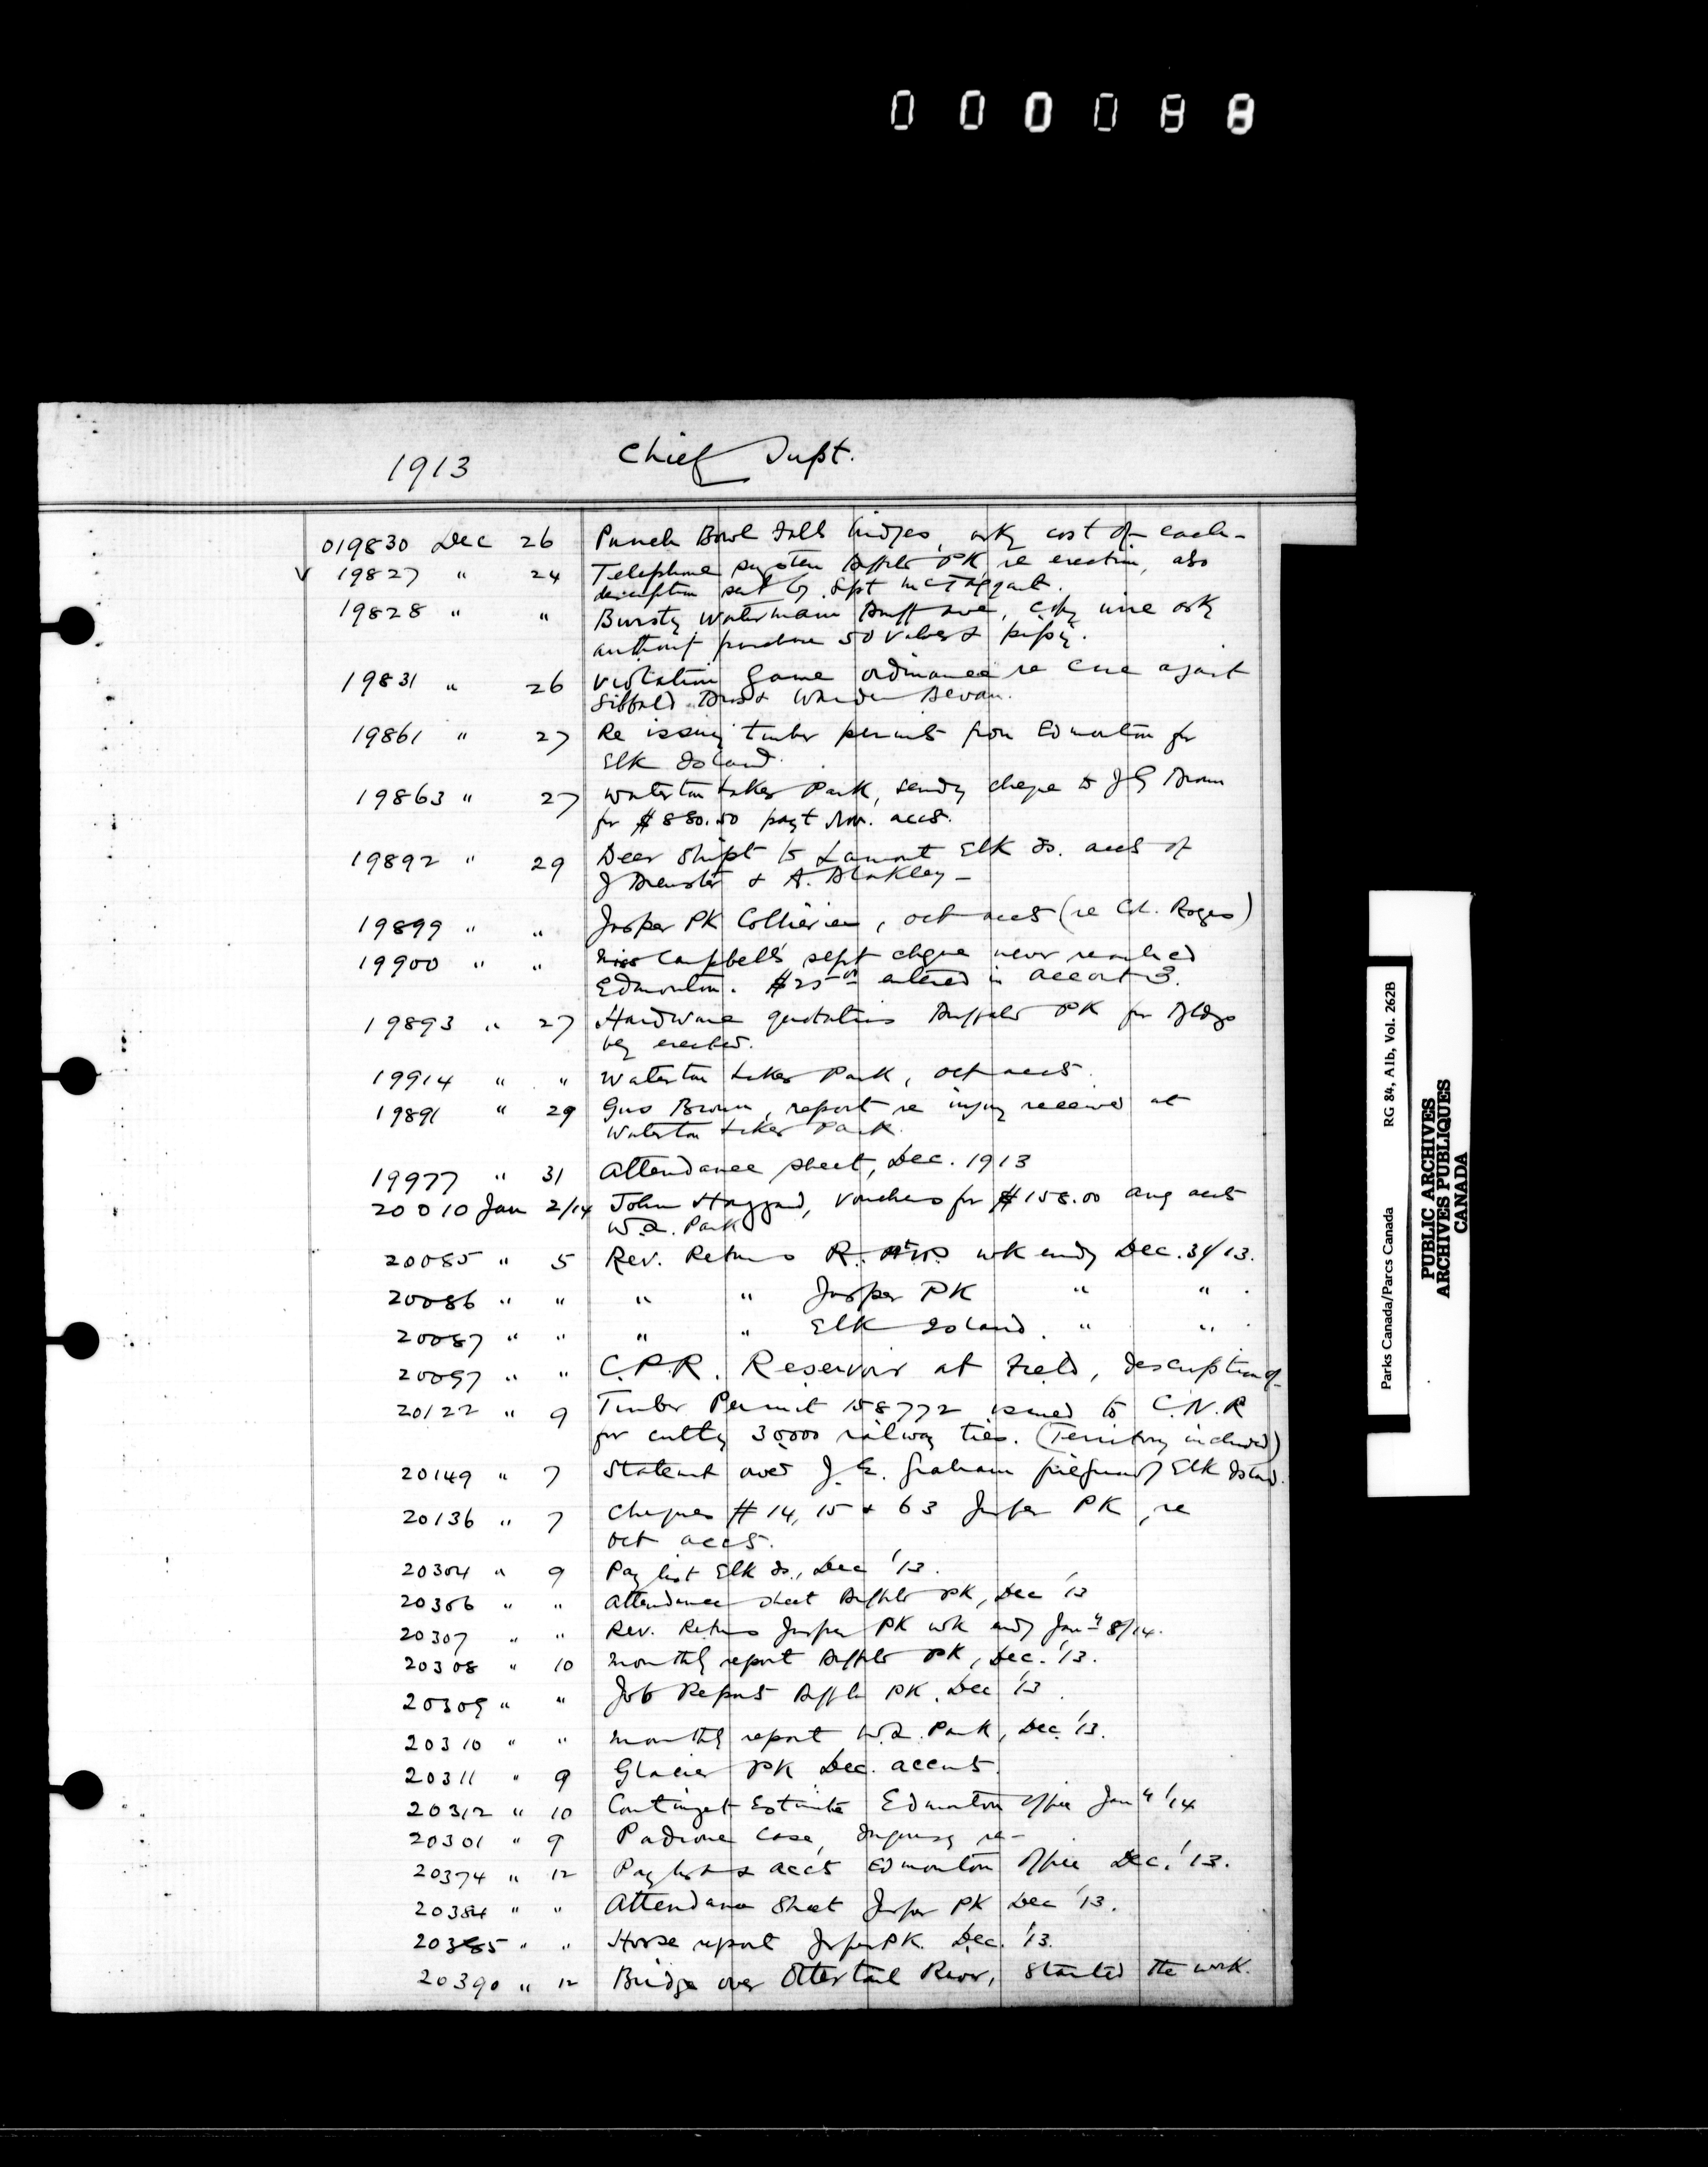 000088
1913 Chief Supt.
019830 Dec 26 Punch Bowl Falls bridges, askg cost of each -
√ 19827 " 24 Telephone system Buffalo PK, re erection, also
description sent by Supt McTaggart.
19828 " " Bursty Watermain Banff ave, copy wire askg
authority purchase 50 valves & pipg.
19831 " 26 Violation Game ordinance re case against
Sibbald Bros & Warden Bevan.
19861 " 27 Re issuing timber permits from Edmonton for
Elk Island.
19863 " 27 Waterton Lakes Park, sendg cheque to J G Brown
for $880.50 payt Nov. accts.
19892 " 29 Deer Shipt to Lamont Elk Is. accts of
J Brewster & A. Blakley -
19899 " " Jasper PK Collieries, oct accts (re Col. Rogers)
19900 " " Miss Campbell's sept chque never reached
Edmonton. $25 00 entered in account 3.
19893 " 27 Hardware quotations Buffalo PK for Bldgs
beg erected.
19914 " " Waterton Lakes Park, oct accts.
19891 " 29 Gus Brown, report re injury received at
Waterton Lakes Park.
19977 " 31 Attendance sheet, Dec. 1913
20010 Jan 2/14 John Haggard, vouchers for $158.00 aug accts
W.L. Park
20085 " 5 Rev. Returns R. Mt. P. wk endg Dec. 31/13.
20086 " " " " Jasper PK " " .
20087 " " " " Elk Island. " " .
20097 " " C.P.R. Reservoir at Field, description of -
20122 " 9 Timber Permit 158772 issued to C.N.R
for cuttg 30000 railway ties. (Territory included)
20149 " 7 Statemt over J. E. Graham fireguard Elk Island.
20136 " 7 Cheques # 14, 15 & 63 Jasper PK, re
oct accts.
20304 " 9 Pay list Elk Is., Dec '13.
20306 " " Attendance sheet Buffalo PK, Dec '13
20307 " " Rev. Returns Jasper PK wk endg Jany 8/14.
20308 " 10 Monthly report Buffalo PK, Dec. '13.
20309 " " Job Report Buffalo PK. Dec '13.
20310 " " Monthly report W.L. Park, Dec. '13.
20311 " 9 Glacier PK Dec. accounts.
20312 " 10 Contingent Estimate Edmonton office Jany '14
20301 " 9 Padrone Case, Inquiry re -
20374 " 12 Paylist & accts Edmonton Office Dec. '13.
20384 " " Attendance Sheet Jasper PK Dec '13.
20385 " " Horse report Jasper PK. Dec. '13.
20390 " 12 Bridge over Ottertail River, started the work.
Parks Canada/Parcs Canada RG 84, A1b, Vol. 262B
PUBLIC ARCHIVES
ARCHIVES PUBLIQUES
CANADA